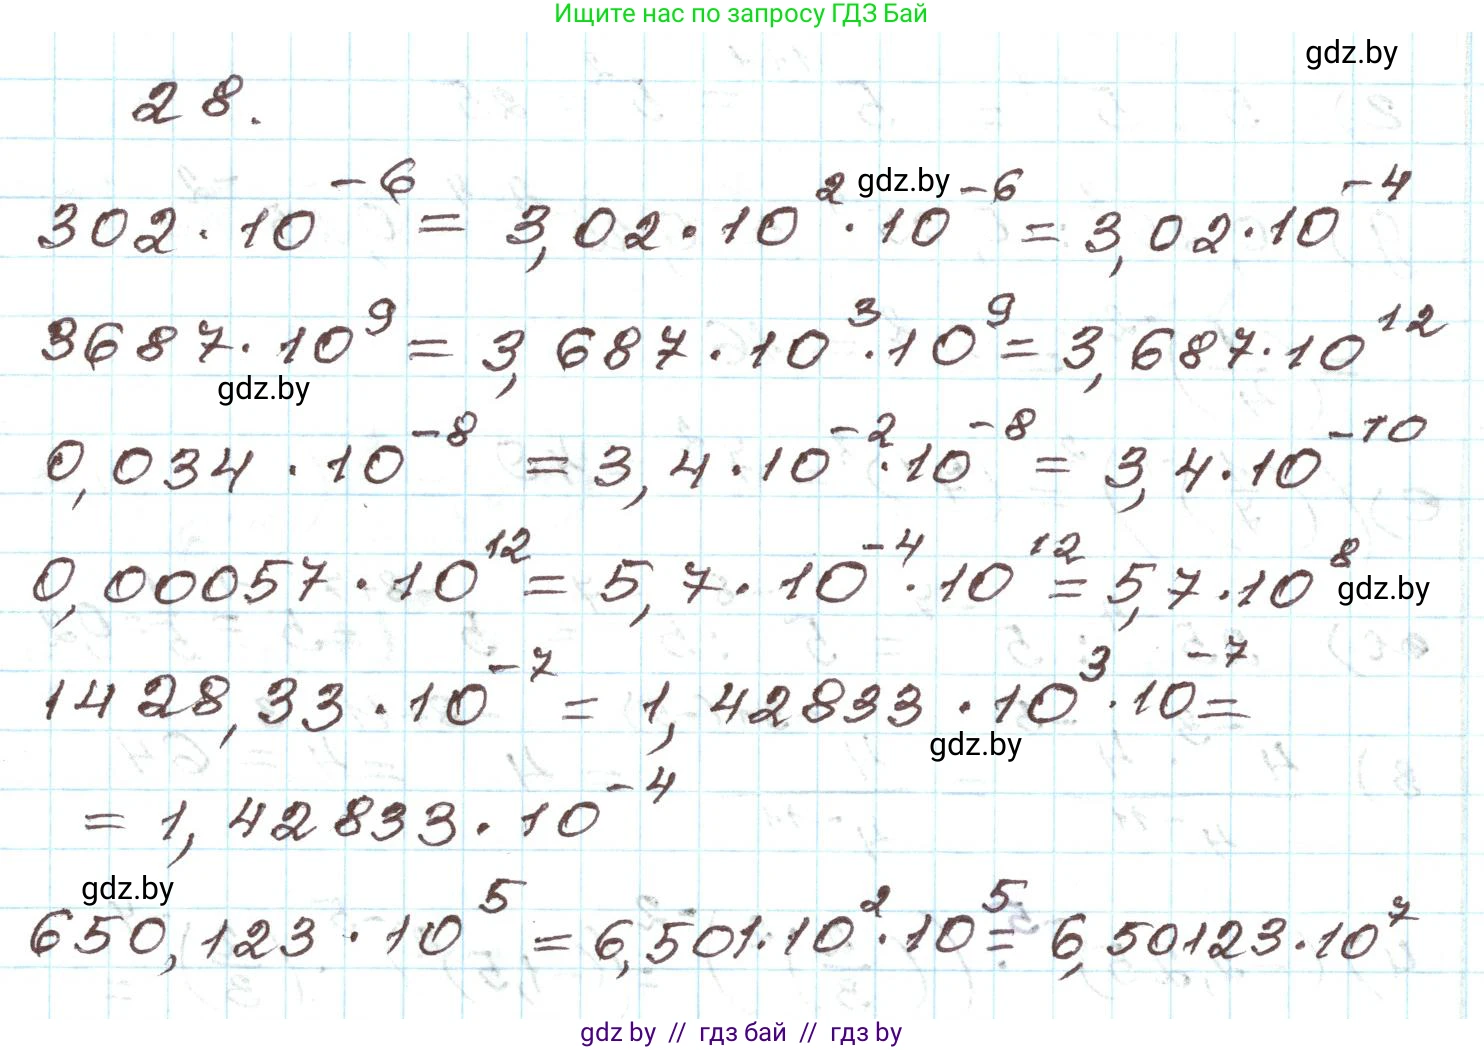 Ищите нас по запросу ГДЗ Бай
gdz.by
28.
302 · 10⁻⁶ = 3,02 · 10² · 10⁻⁶ = 3,02 · 10⁻⁴
gdz.by
3687 · 10⁹ = 3,687 · 10³ · 10⁹ = 3,687 · 10¹²
gdz.by
0,034 · 10⁻⁸ = 3,4 · 10⁻² · 10⁻⁸ = 3,4 · 10⁻¹⁰
0,00057 · 10¹² = 5,7 · 10⁻⁴ · 10¹² = 5,7 · 10⁸
gdz.by
1428,33 · 10⁻⁷ = 1,42833 · 10³ · 10⁻⁷ =
gdz.by
= 1,42833 · 10⁻⁴
gdz.by
650,123 · 10⁵ = 6,501 · 10² · 10⁵ = 6,50123 · 10⁷
gdz by // гдз бай // гдз by